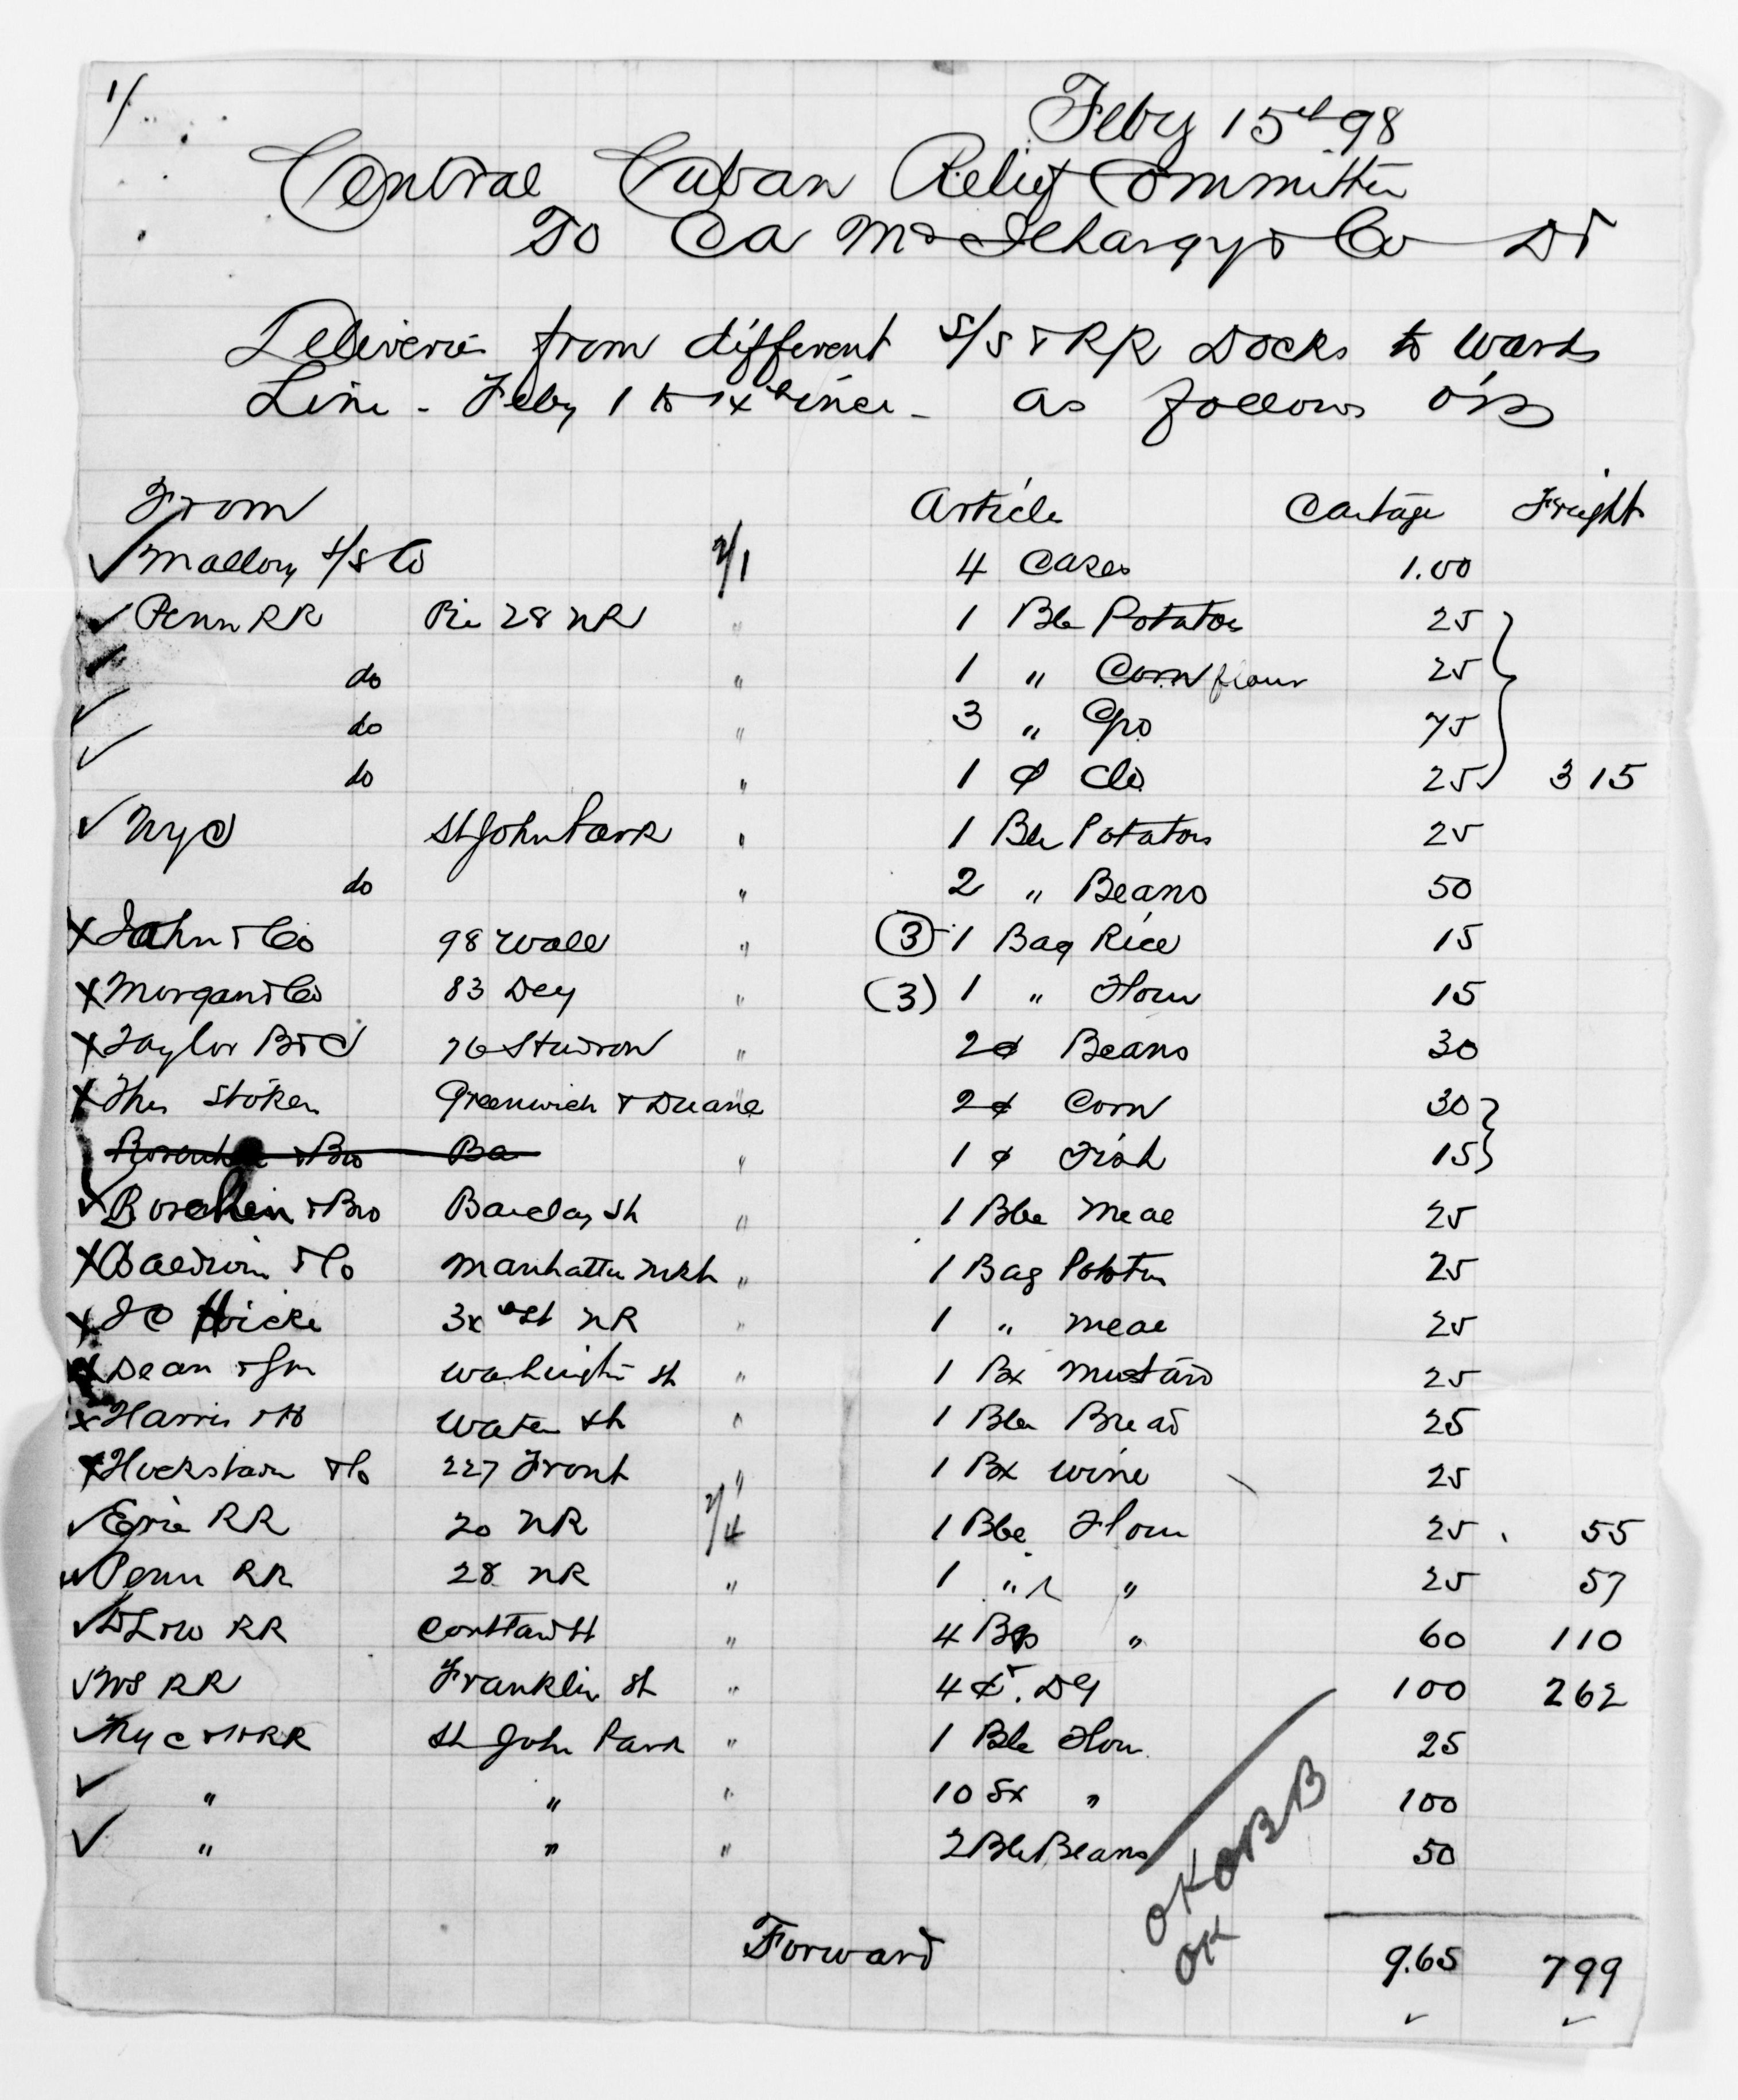 1/
Feby 15th 98
Central Cuban Relief Committee
To Ca McIlhargy & Co Dr
Deliveries from different S/S & RR Docks to Wards
Line - Feby 1 to as follows
From Article Cartage Freight
Mallory S/S Co 2/1 4 Cases 1.00
Penn RR Pie 28 NR " 1 Bbl Potatoes 25
do " 1 " Corn flour 25
do " 3 " Gro 75
do " 1 Clo 25 315
NYC St John Park " 1 Bbl Potatoes 25
do " 2 " Beans 50
Jahn & Co 98 Wall " (3) 1 Bag Rice 15
Morgan & Co 83 Dey " (3) 1 " Flour 15
Taylor B & C 76 " 2 Beans 30
Thos Stoken Greenwich & Duane " 2 Corn 30
& Bro Ba " 1 Fish 15
& Bro Barclay St " 1 Bbl Meal 25
Baldwin & Co Manhattan Mkt " 1 Bag Potatoes 25
St NR " 1 " Meal 25
Dean & Son Washington St " 1 Bx Mustard 25
Harris Water St " 1 Bbl Bread 25
& Co 227 Front " 1 Bx Wine 25
Erie RR 20 NR 2/4 1 Bbl Flour 25 55
Penn RR 28 NR " 1 " " 25 57
DL&W RR Cortlandt " 4 Bgs " 60 110
RR Franklin St " 4 DG 100 262
NYC & HRR St John Park " 1 Bbl Flour 25
" " " 10 Sx " 100
" " " 2 Bbl Beans 50
OK OBB
OK
Forward 9.65 799